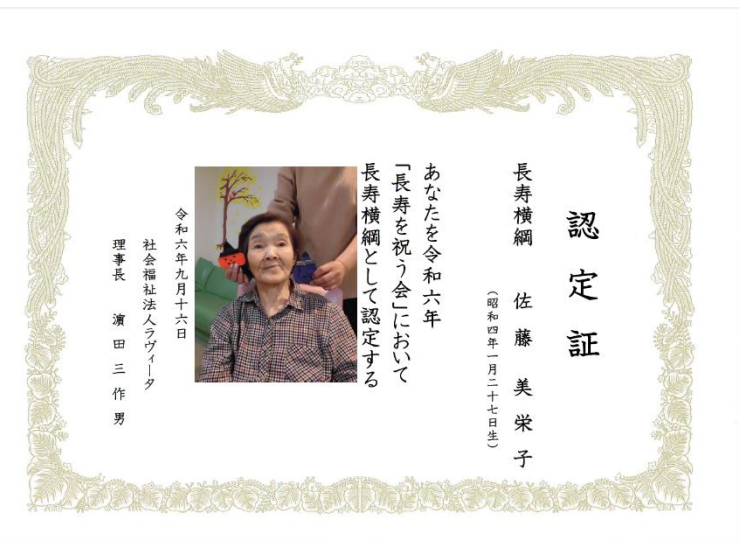 認定証
長寿横綱 佐藤美栄子
(昭和四年一月二十七日生)
あなたを令和六年
「長寿を祝う会」において
長寿横綱として認定する
令和六年九月十六日
社会福祉法人ラヴィータ
理事長 濵田三作男